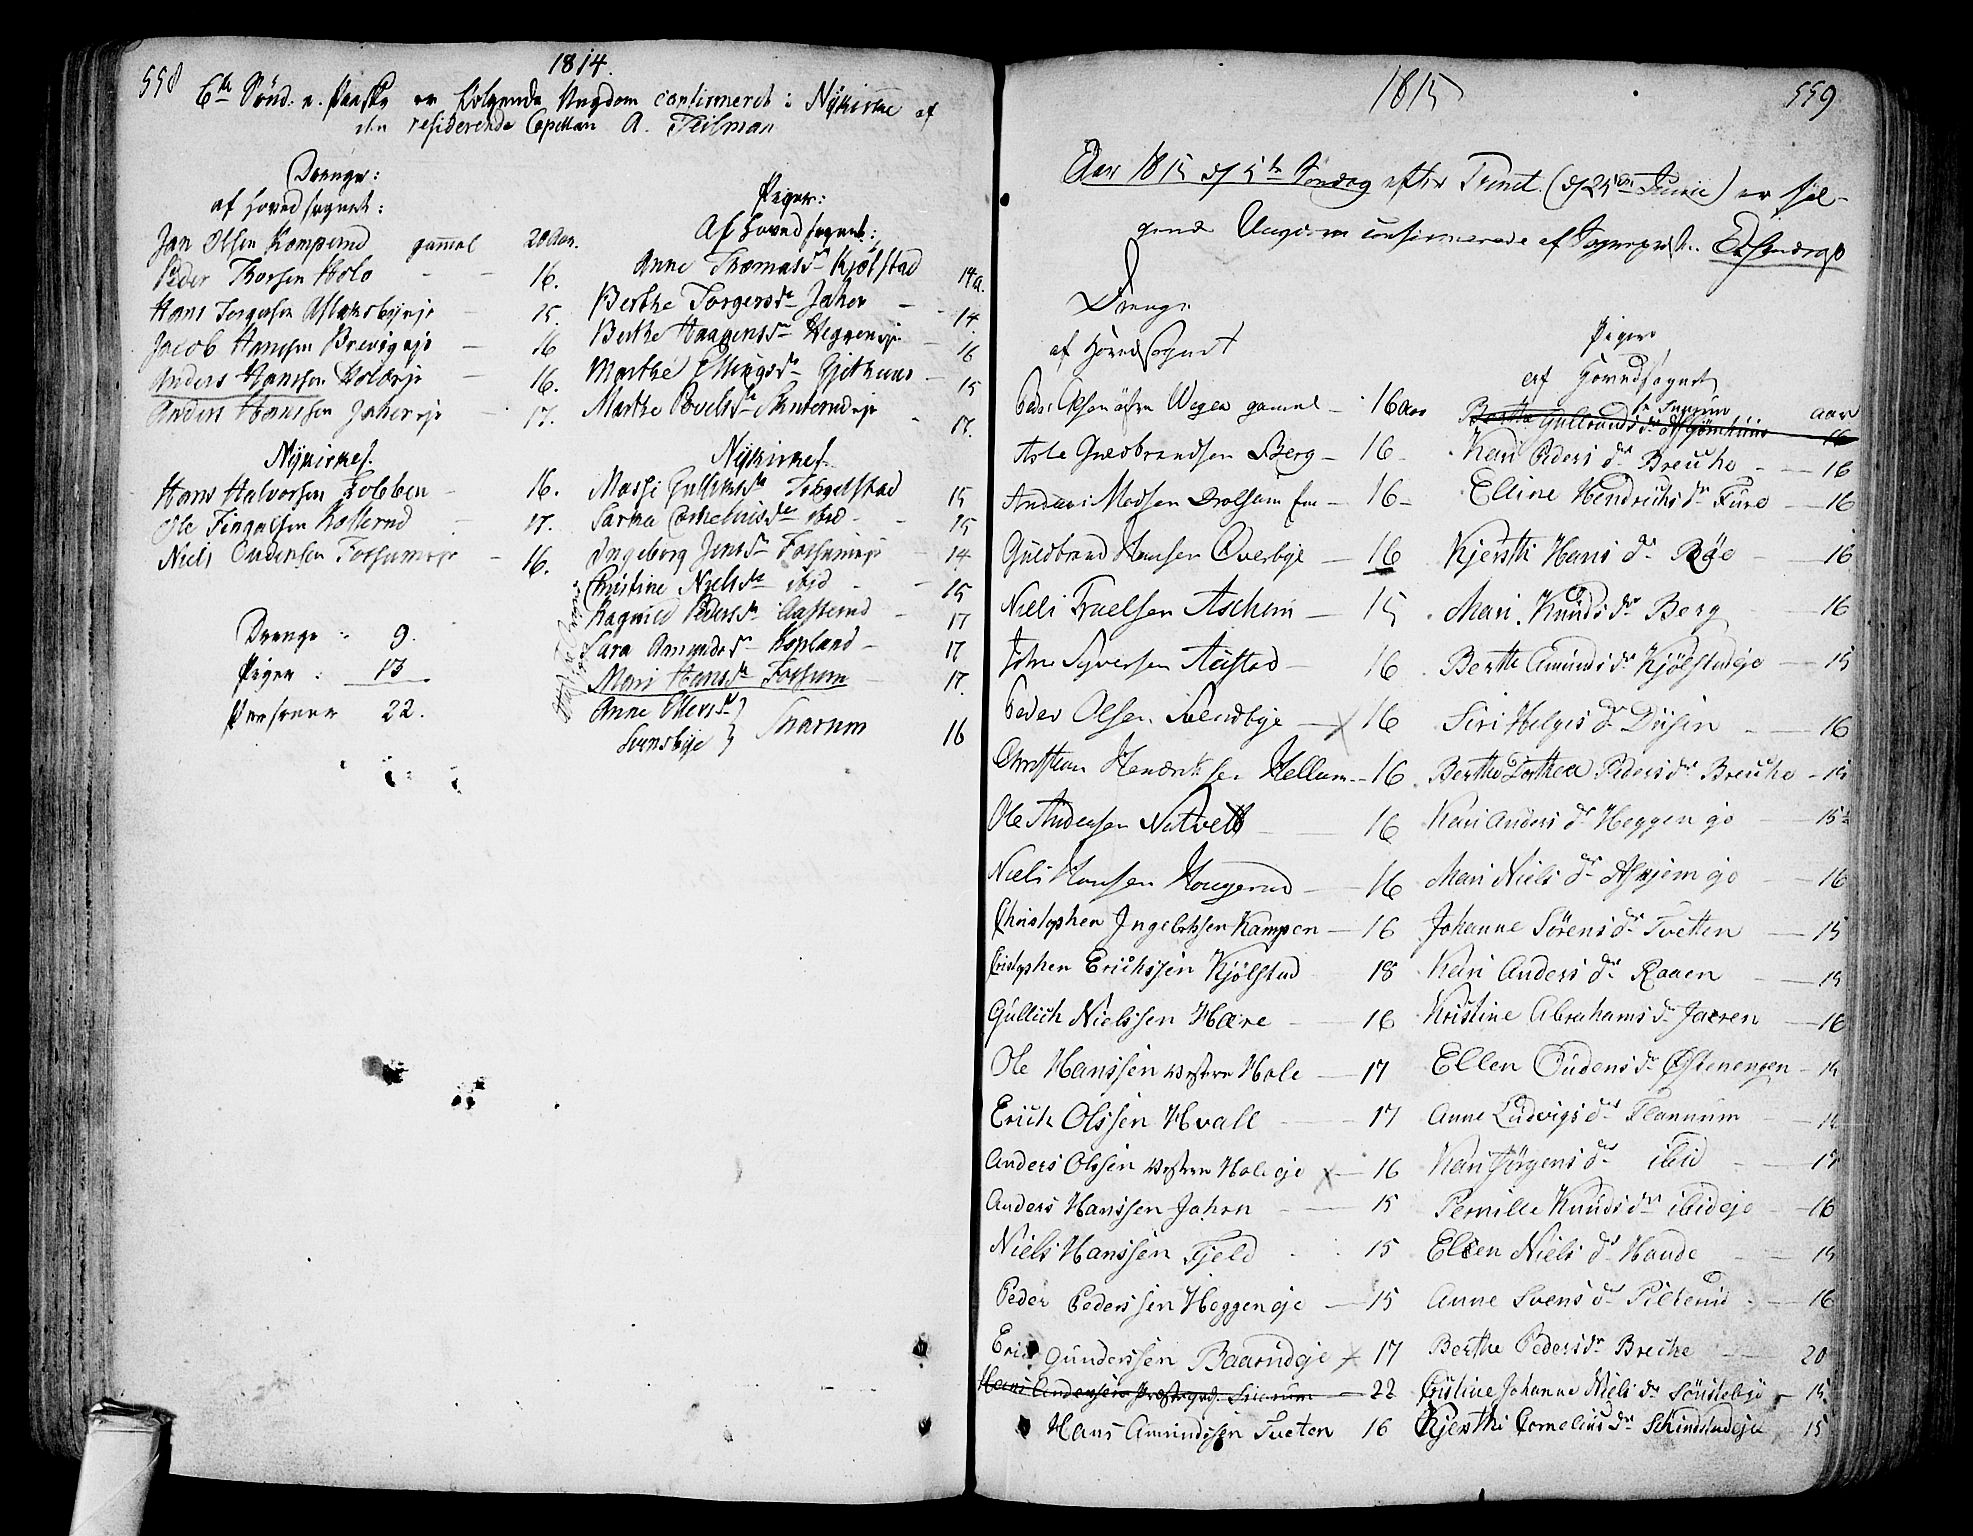 558
1814.
6te Sønd. e. Paaske er følgende Ungdom confirmeret i Nykirke af
den residerende Capellan A. Teilman
Drenge:
af Hovedsognet:
Jan Olsen Komperud gammel 20 Aar.
Peder Thorsen Holo - - 16.
Hans Torgersen Aslaksbyeje - 15.
Jacob Hansen Brevigeje - 16
Anders Hanssen Holereje - 16.
Anders Hanssen Jahereje - 17.
Nykirkes.
Hans Halvorsen Tobben - 16.
Ole Fingalsen Kollerud - 17.
Niels Oudensen Forsumeje - 16.
Drenge : 9.
Piger : 13
Personer 22.
Piger:
Af Hovedsognet:
Anne Thomasdr Kjølstad 14 a.
Berthe Torgersdr Jahor - 14
Berthe Haagensdr Heggeneje - 16
Marthe Ellingsdr Gjethuus - 15
Marthe Povelsdr Skuterudeje 17.
Nykirkes.
Massi Gulliksdr Tingelstad 15
Sarka Corneliusdr ibid - 15
Ingeborg Jensdr Forsumeje - 14
Christine Nielsdr ibid - 15
Ragnild Pedersdr Aasterud - 17
Sara Amundsdr Kopland - 17
Mari Hansdr Forsum - 17.
Anne Ellersdr }
Svensbye } Snarum 16
1815
559
Aar 1815 d 5te Søndag efter Trinit. (d 25de Junie) er føl-
gende Ungdom confirmerede af Sognepræst
Drenge
af Hovedsognet
Peder Wegea gammel - 16 Aar
Asle Guldbrandsen Berg - 16 -
Anders Madsen - 16 -
Guldbrand Hansen Overbye - 16
Niels Truelsen Aschim - 15
John Syversen Austad - 16
Peder Olsen Svendbye - x 16
Christian Hendriksen Hellum - 16
Ole Andersen Natvett - 16
Niels Hansen Hougerud - 16
Christopher Ingebretssen Kampen - 16
Cristopher Erichssen Kjølstad 18
Gullich Nielssen Hære - 16
Ole Hanssen vestre Hole - 17
Erich Olssen Hvall - 17
Anders Olssen vestre Holeeje x - 16
Anders Hanssen Jahren - 15
Niels Hanssen Fjeld - 15
Peder Pederssen Heggeneje - 15
Erich Gunderssen Baarudeje x 17
Hans Andersen Præstegrd. Snarum - 22
Hans Amundssen Tveten 16
Piger
af Hovedsognet
aar
Berthe Gulbrandsdr 16
Kari Pedersdr Breche - 16
Elline Hendrichsdr Fure - 16
Kjersthi Hansdr Røe - 16
Mari Knudsdr Berg 16
Berthe Amundsdr Kjølstadeje - 15
Siri Helgesdr Dusin - 16
Berthe Dorthea Pedersdr Breche - 15
Kari Andersdr Heggen eje - 15½
Mari Nielsdr Askjem eje - 16
Johanne Sørensdr Tvetten - 15
Kari Andersdr Raaen - 15
Kristine Abrahamsdr Jaeren - 16
Ellen Oudensdr Østenengen - 14
Anne Ludvigsdr Flannum - 14
Kari Jørgensdr ibid - 15
Pernille Knudsdr ibideje - 16
Ellen Nielsdr Haude - 15
Anne Svensdr Pilterud - 16
Berthe Pedersdr Breche - 20
Cristine Johanne Nielsdr Sønstebye - 15
Kjersthi Cornelinsdr Skindstadeje - 15